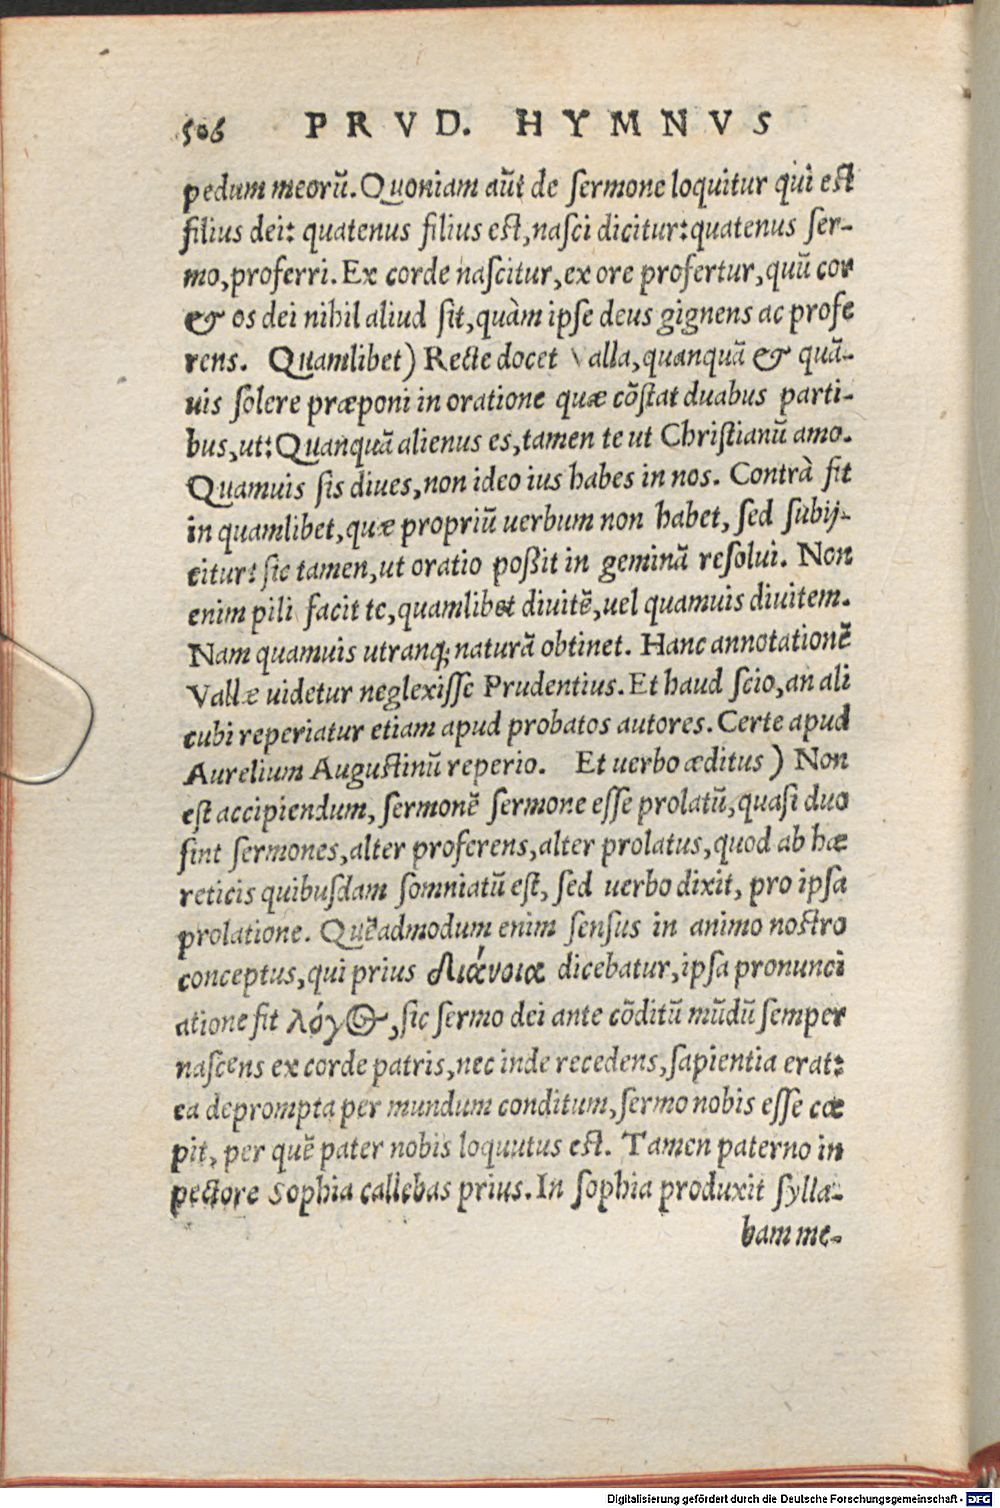 506 PRVD. HYMNVS
pedum meorū. Quoniam aūt de sermone loquitur qui est
filius dei: quatenus filius est, nasci dicitur: quatenus ser-
mo, proferri. Ex corde nascitur, ex ore profertur, quū cor
& os dei nihil aliud sit, quàm ipse deus gignens ac profe
rens. Quamlibet) Recte docet Valla, quanquā & quā-
uis solere præponi in oratione quæ cōstat duabus parti-
bus, ut: Quanquā alienus es, tamen te ut Christianū amo.
Quamuis sis diues, non ideo ius habes in nos. Contrà fit
in quamlibet, quæ propriū uerbum non habet, sed subij-
citur: sic tamen, ut oratio possit in geminā resolui. Non
enim pili facit te, quamlibet diuitē, uel quamuis diuitem.
Nam quamuis utranq; naturā obtinet. Hanc annotationē
Vallæ uidetur neglexisse Prudentius. Et haud scio, an ali
cubi reperiatur etiam apud probatos autores. Certe apud
Aurelium Augustinū reperio. Et uerbo æditus) Non
est accipiendum, sermonē sermone esse prolatū, quasi duo
sint sermones, alter proferens, alter prolatus, quod ab hæ
reticis quibusdam somniatū est, sed uerbo dixit, pro ipsa
prolatione. Quēadmodum enim sensus in animo nostro
conceptus, qui prius διάνοια dicebatur, ipsa pronunci
atione fit λόγος, sic sermo dei ante cōditū mūdū semper
nascens ex corde patris, nec inde recedens, sapientia erat:
ea deprompta per mundum conditum, sermo nobis esse cœ
pit, per quē pater nobis loquutus est. Tamen paterno in
pectore Sophia callebas prius. In sophia produxit sylla-
bam me-
Digitalisierung gefördert durch die Deutsche Forschungsgemeinschaft - DFG